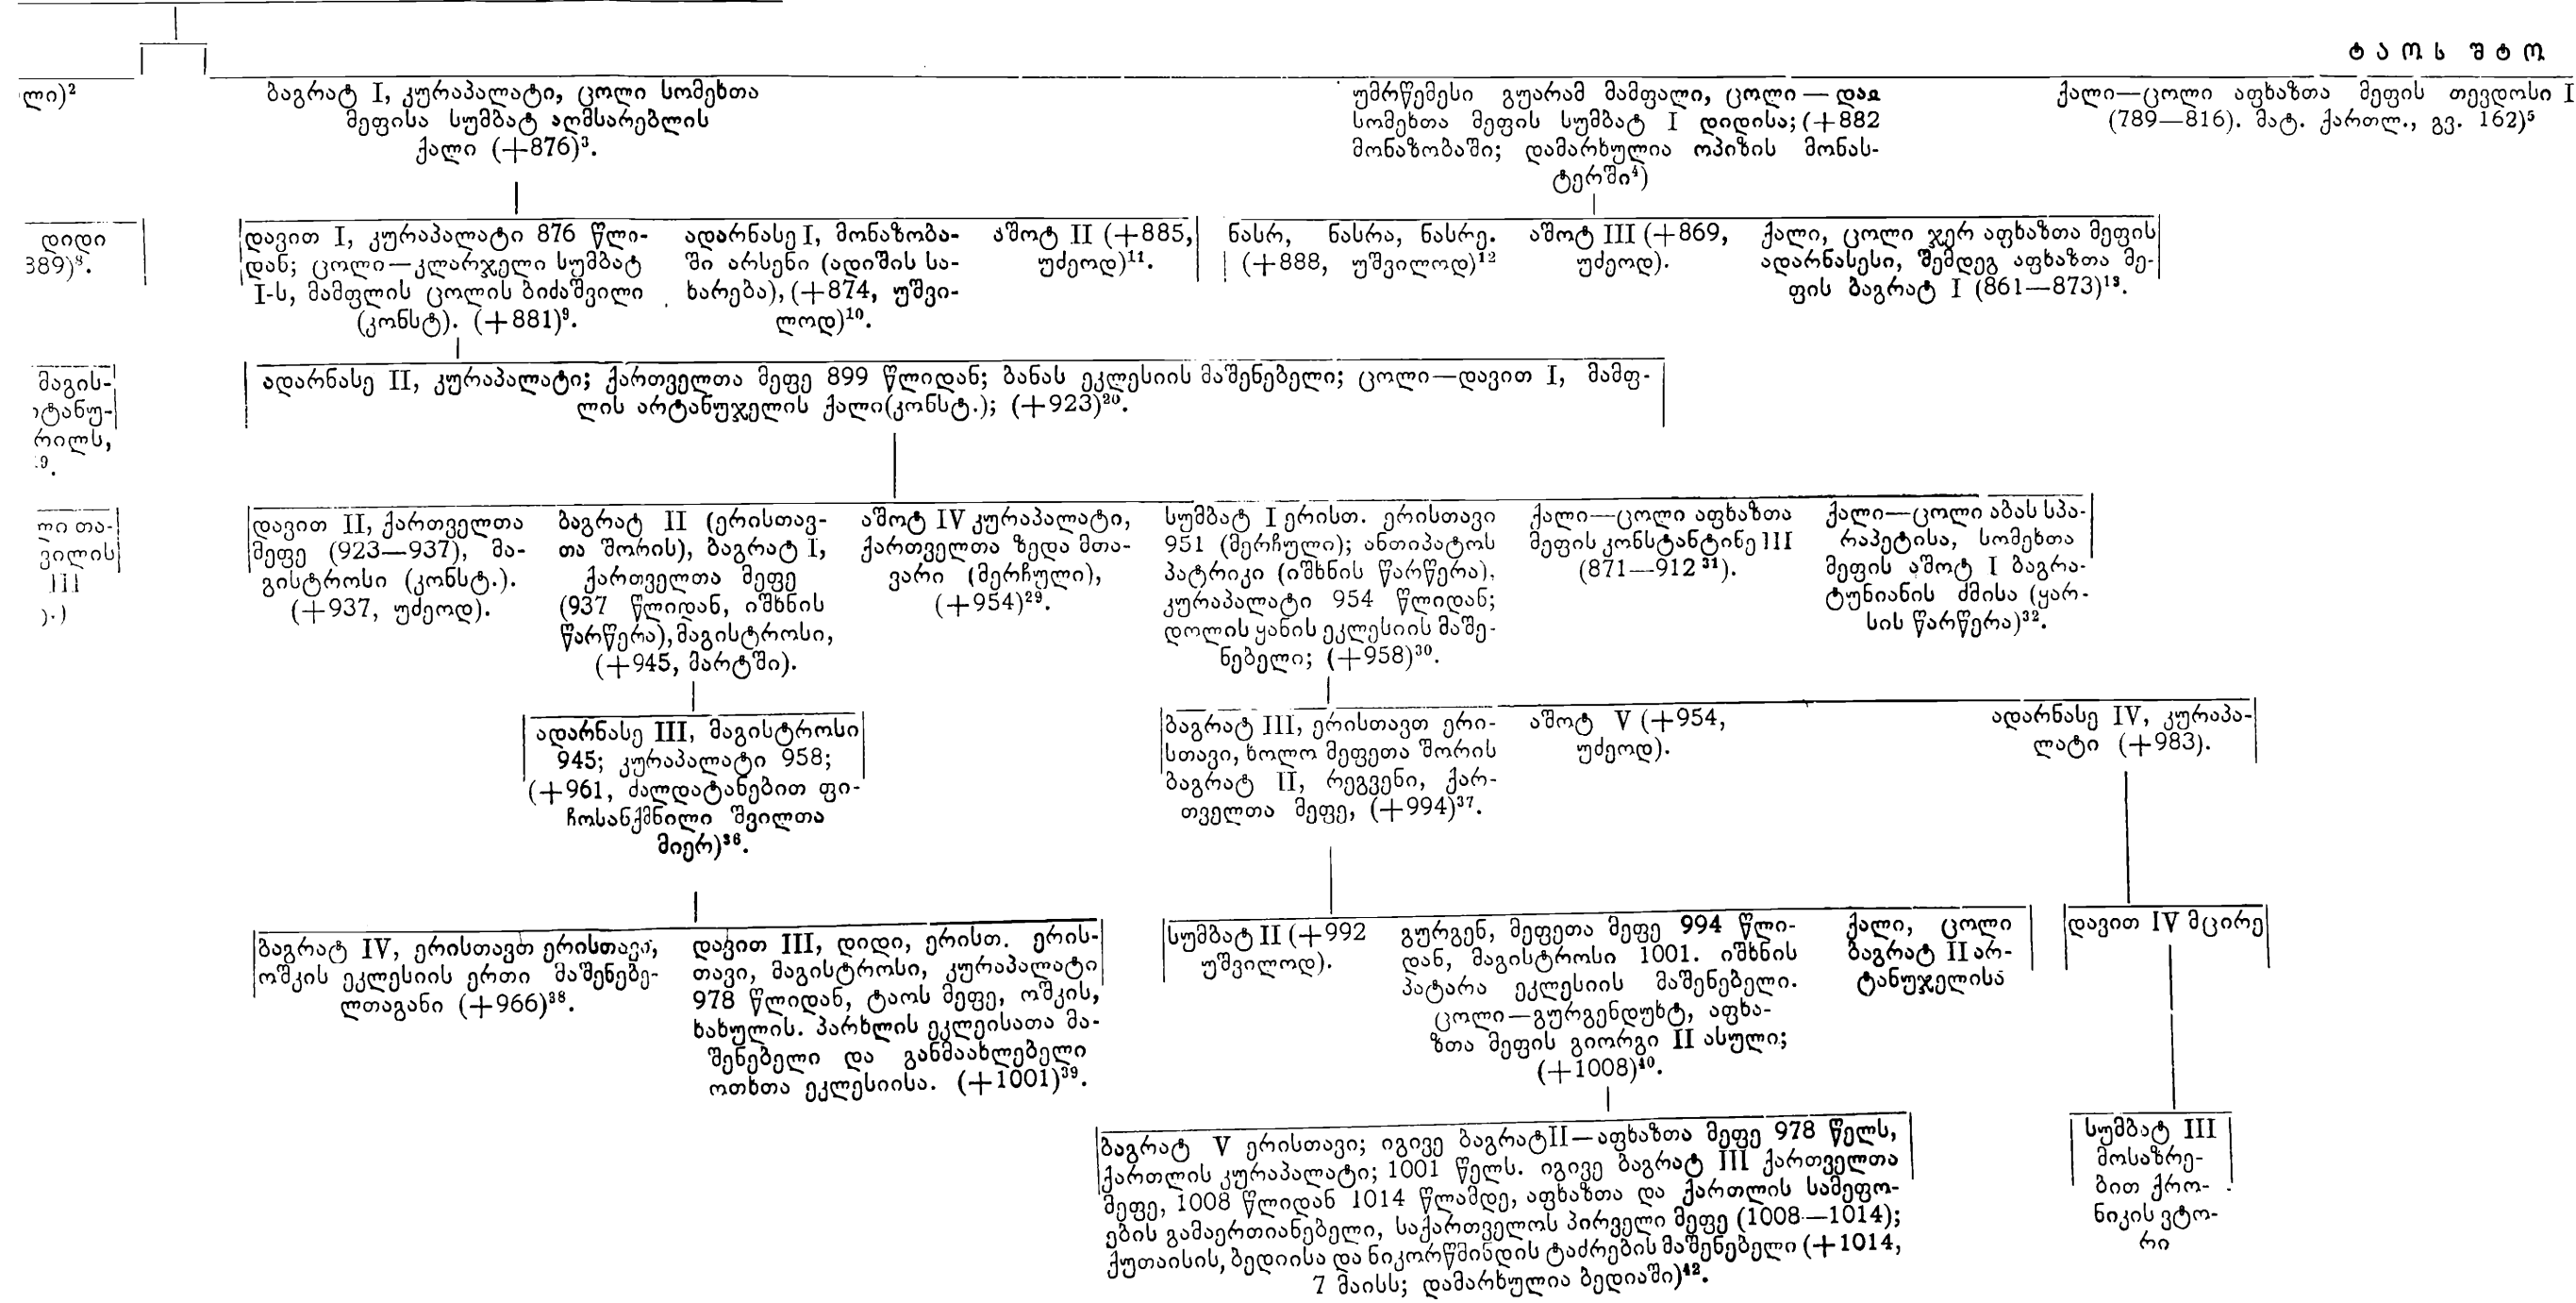 ტაოს შტო
ლი)²
ბაგრატ I, კურაპალატი, ცოლი სომეხთა
მეფისა სუმბატ აღმსარებლის
ქალი (+876)³.
უმრწემესი გუარამ მამფალი, ცოლი — და
სომეხთა მეფის სუმბატ I დიდისა; (+882
მონაზობაში; დამარხულია ოპიზის მონას-
ტერში⁴)
ქალი—ცოლი აფხაზთა მეფის თევდოსი I
(789—816). მატ. ქართლ., გვ. 162)⁵
დიდი
389)⁸.
დავით I, კურაპალატი 876 წლი-
დან; ცოლი—კლარჯელი სუმბატ
I-ს, მამფლის ცოლის ბიძაშვილი
(კონსტ). (+881)⁹.
ადარნასე I, მონაზობა-
ში არსენი (ადიშის სა-
ხარება), (+874, უშვი-
ლოდ)¹⁰.
აშოტ II (+885,
უძეოდ)¹¹.
ნასრ, ნასრა, ნასრე.
(+888, უშვილოდ)¹²
აშოტ III (+869,
უძეოდ).
ქალი, ცოლი ჯერ აფხაზთა მეფის
ადარნასესი, შემდეგ აფხაზთა მე-
ფის ბაგრატ I (861—873)¹³.
მაგის-
ტანუ-
რილს,
⁹.
ადარნასე II, კურაპალატი; ქართველთა მეფე 899 წლიდან; ბანას ეკლესიის მაშენებელი; ცოლი—დავით I, მამფ-
ლის არტანუჯელის ქალი(კონსტ.); (+923)²⁰.
ლი თა-
ვილის
III
).)
დავით II, ქართველთა
მეფე (923—937), მა-
გისტროსი (კონსტ.).
(+937, უძეოდ).
ბაგრატ II (ერისთავ-
თა შორის), ბაგრატ I,
ქართველთა მეფე
(937 წლიდან, იშხნის
წარწერა), მაგისტროსი,
(+945, მარტში).
აშოტ IV კურაპალატი,
ქართველთა ზედა მთა-
ვარი (მერჩული),
(+954)²⁹.
სუმბატ I ერისთ. ერისთავი
951 (მერჩული); ანთიპატოს
პატრიკი (იშხნის წარწერა),
კურაპალატი 954 წლიდან;
დოლის ყანის ეკლესიის მაშე-
ნებელი; (+958)³⁰.
ქალი—ცოლი აფხაზთა
მეფის კონსტანტინე III
(871—912 ³¹).
ქალი—ცოლი აბას სპა-
რაპეტისა, სომეხთა
მეფის აშოტ I ბაგრა-
ტუნიანის ძმისა (ყარ-
სის წარწერა)³².
ადარნასე III, მაგისტროსი
945; კურაპალატი 958;
(+961, ძალდატანებით ფი-
ჩოსანქმნილი შვილთა
მიერ)³⁶.
ბაგრატ III, ერისთავთ ერი-
სთავი, ხოლო მეფეთა შორის
ბაგრატ II, რეგვენი, ქარ-
თველთა მეფე, (+994)³⁷.
აშოტ V (+954,
უძეოდ).
ადარნასე IV, კურაპა-
ლატი (+983).
ბაგრატ IV, ერისთავთ ერისთავი,
ოშკის ეკლესიის ერთი მაშენებე-
ლთაგანი (+966)³⁸.
დავით III, დიდი, ერისთ. ერის-
თავი, მაგისტროსი, კურაპალატი
978 წლიდან, ტაოს მეფე, ოშკის,
ხახულის. პარხლის ეკლეისათა მა-
შენებელი და განმაახლებელი
ოთხთა ეკლესიისა. (+1001)³⁹.
სუმბატ II (+992
უშვილოდ).
გურგენ, მეფეთა მეფე 994 წლი-
დან, მაგისტროსი 1001. იშხნის
პატარა ეკლესიის მაშენებელი.
ცოლი—გურგენდუხტ, აფხა-
ზთა მეფის გიორგი II ასული;
(+1008)⁴⁰.
ქალი, ცოლი
ბაგრატ II არ-
ტანუჯელისა
დავით IV მცირე
ბაგრატ V ერისთავი; იგივე ბაგრატ II—აფხაზთა მეფე 978 წელს,
ქართლის კურაპალატი; 1001 წელს. იგივე ბაგრატ III ქართველთა
მეფე, 1008 წლიდან 1014 წლამდე, აფხაზთა და ქართლის სამეფო-
ების გამაერთიანებელი, საქართველოს პირველი მეფე (1008—1014);
ქუთაისის, ბედიისა და ნიკორწმინდის ტაძრების მაშენებელი (+1014,
7 მაისს; დამარხულია ბედიაში)⁴².
სუმბატ III
მოსაზრე-
ბით ქრო-
ნიკის ვტო-
რი